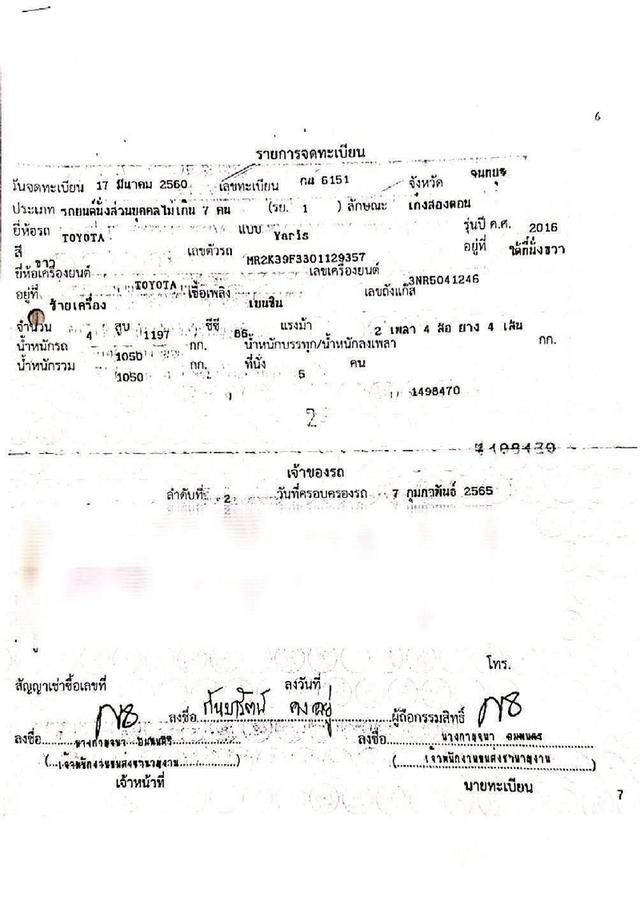 6
รายการจดทะเบียน
วันจดทะเบียน 17 มีนาคม 2560 เลขทะเบียน กน 6151 จังหวัด จันทบุรี
ประเภท รถยนต์นั่งส่วนบุคคลไม่เกิน 7 คน (รย. 1) ลักษณะ เก๋งสองตอน
ยี่ห้อรถ TOYOTA แบบ Yaris รุ่นปี ค.ศ. 2016
สี ขาว เลขตัวรถ MR2K39F3301129357 อยู่ที่ ใต้ที่นั่งขวา
ยี่ห้อเครื่องยนต์ TOYOTA เลขเครื่องยนต์ 3NR5041246
อยู่ที่ ซ้ายเครื่อง เชื้อเพลิง เบนซิน เลขถังแก๊ส
จำนวน 4 สูบ 1197 ซีซี 86 แรงม้า 2 เพลา 4 ล้อ ยาง 4 เส้น
น้ำหนักรถ 1050 กก. น้ำหนักบรรทุก/น้ำหนักลงเพลา กก.
น้ำหนักรวม 1050 กก. ที่นั่ง 5 คน
1498470
2
1498470
เจ้าของรถ
ลำดับที่ 2 วันที่ครอบครองรถ 7 กุมภาพันธ์ 2565
โทร.
สัญญาเช่าซื้อเลขที่ ลงวันที่
ลงชื่อ ผู้ถือกรรมสิทธิ์
ลงชื่อ นางกาญจนา ลงชื่อ นางกาญจนา
(เจ้าพนักงานขนส่งชำนาญงาน) (เจ้าพนักงานขนส่งชำนาญงาน)
เจ้าหน้าที่ นายทะเบียน
7